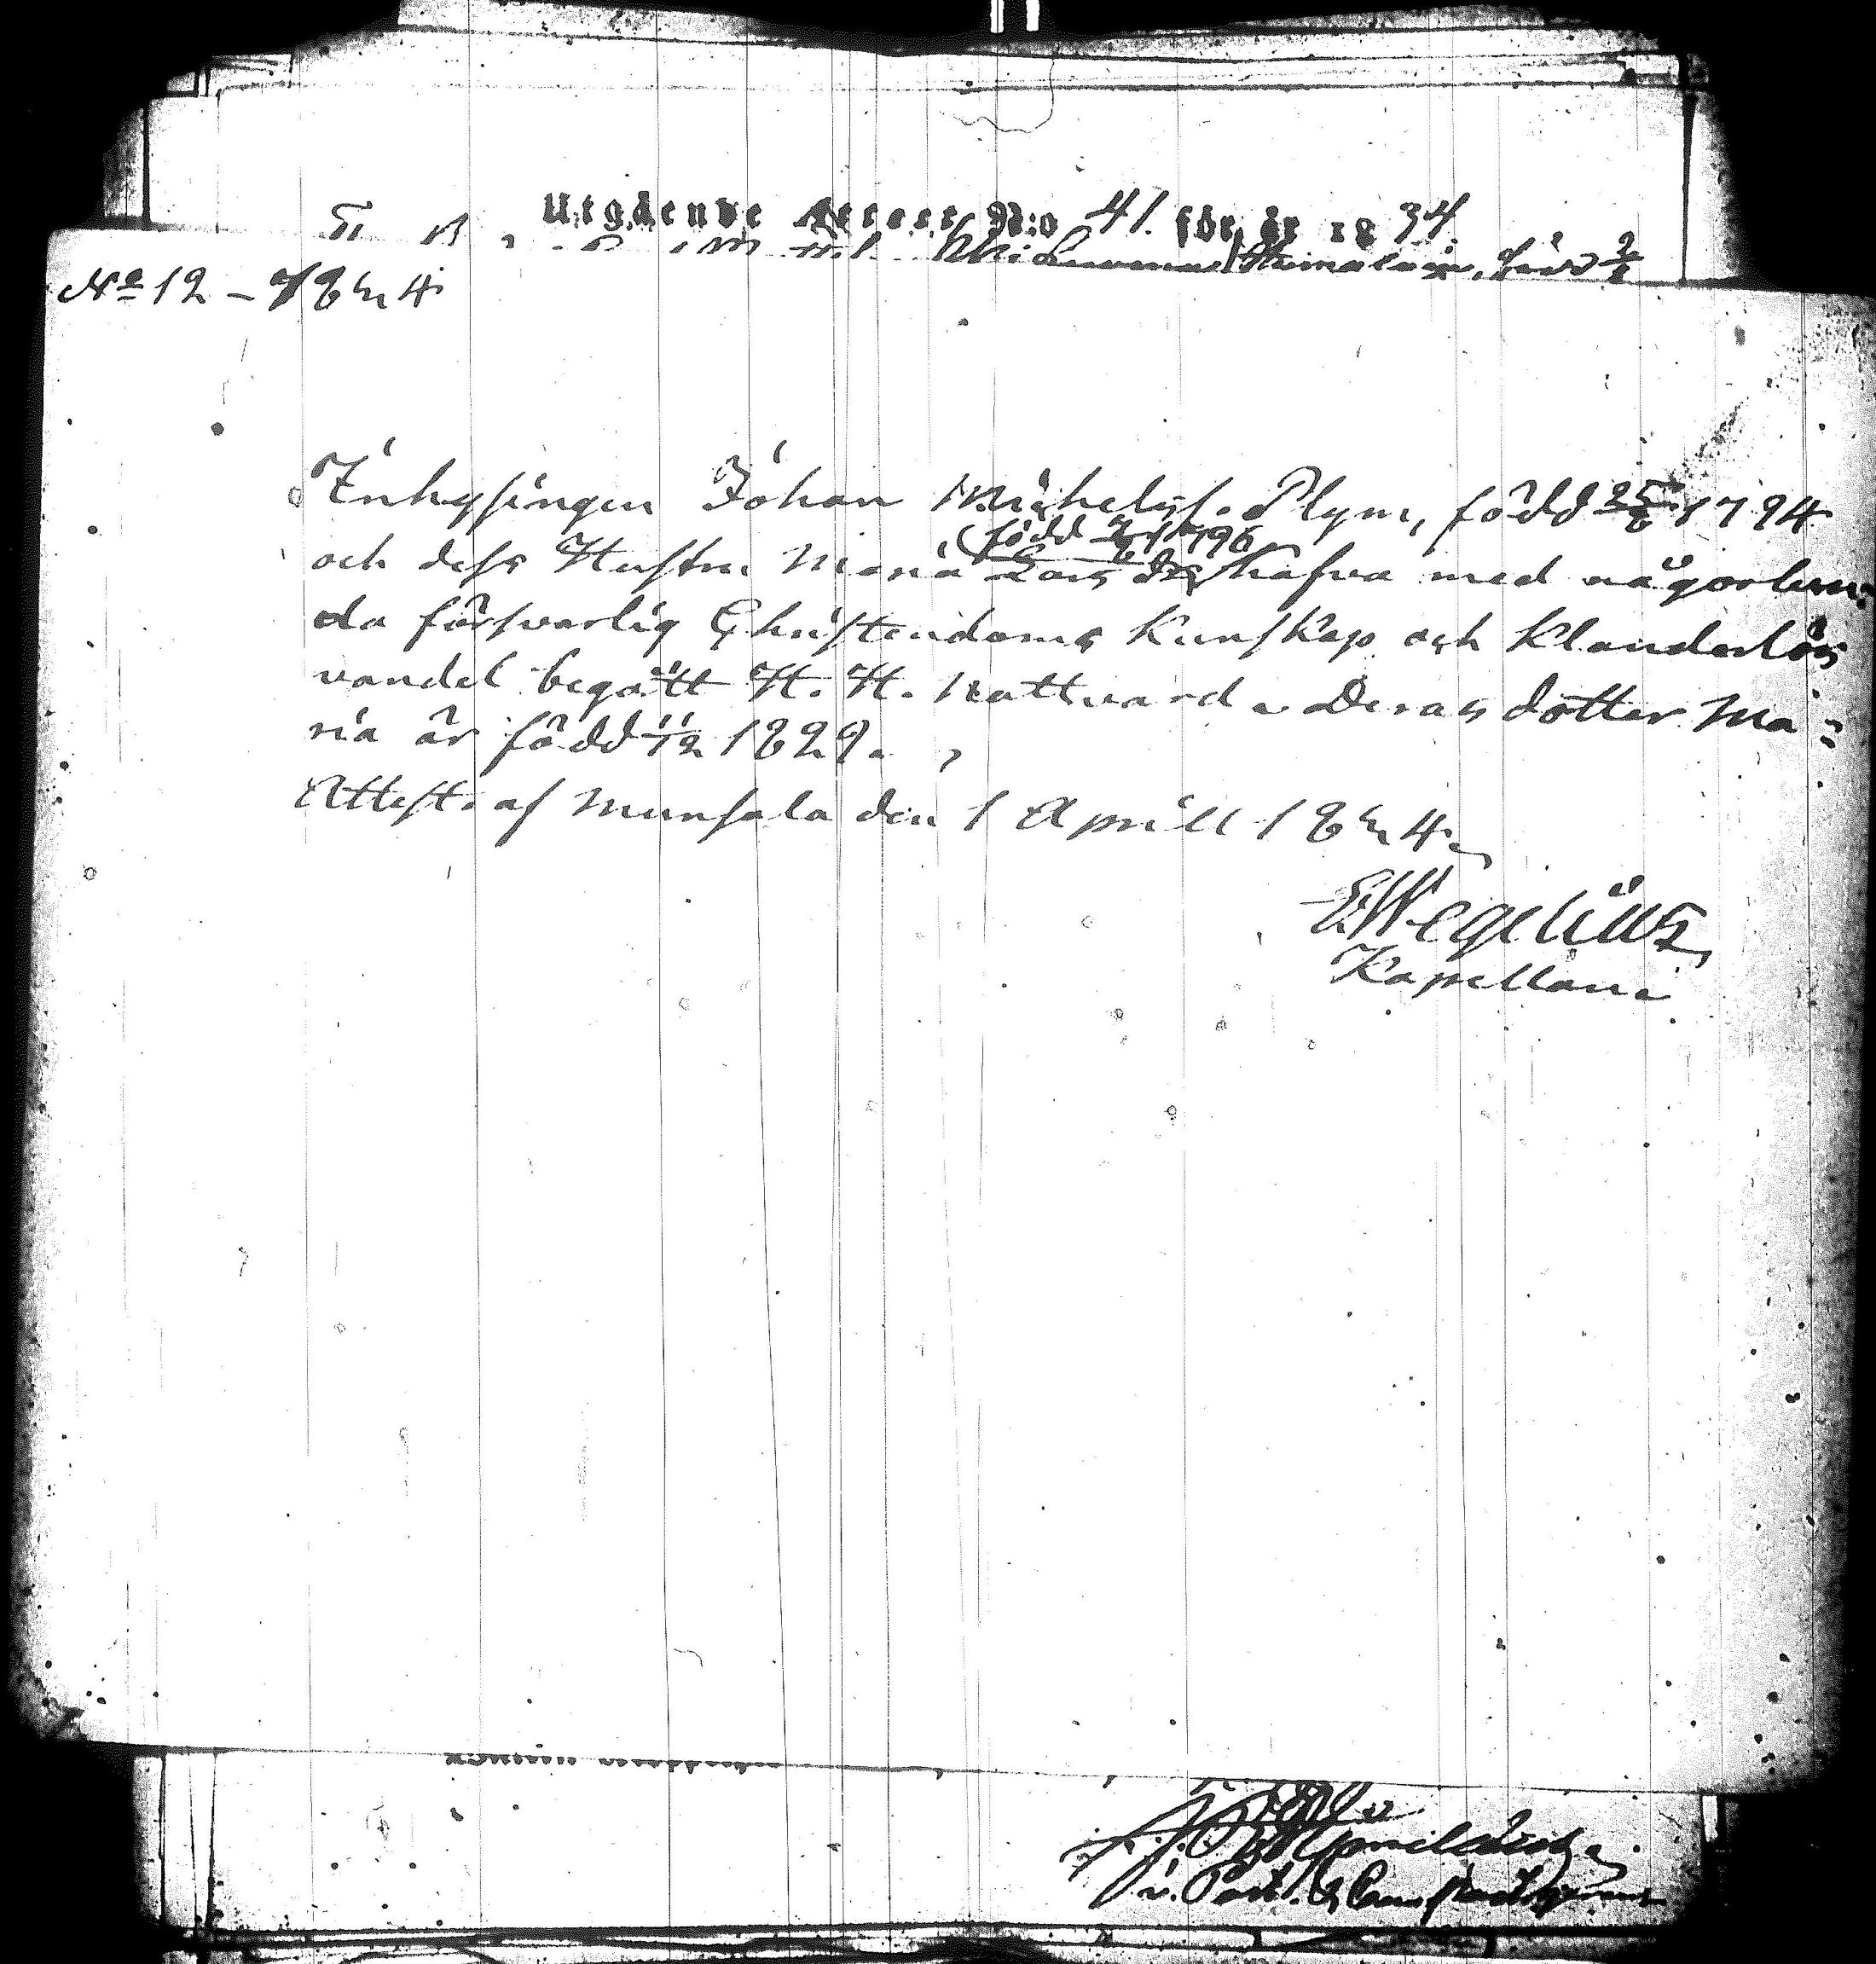 Utgående Attest N:o 41. för år 1834.
född 2/
No 12 – 1834
Inhysingen Johan Michelss. Plym, född 25/6 1794
(född 1796
och dess Hustru Maria Larsdr, hafva med någorlun=
da försvarlig Christendoms Kunskap och Klanderlös
vandel begått H. H. Nattvard. Deras dotter Ma=
ria är född 11/12 1829.
Attest. af Munsala den 1 Aprill 1834.
E Wegelius
Kapellan.
v. Past.